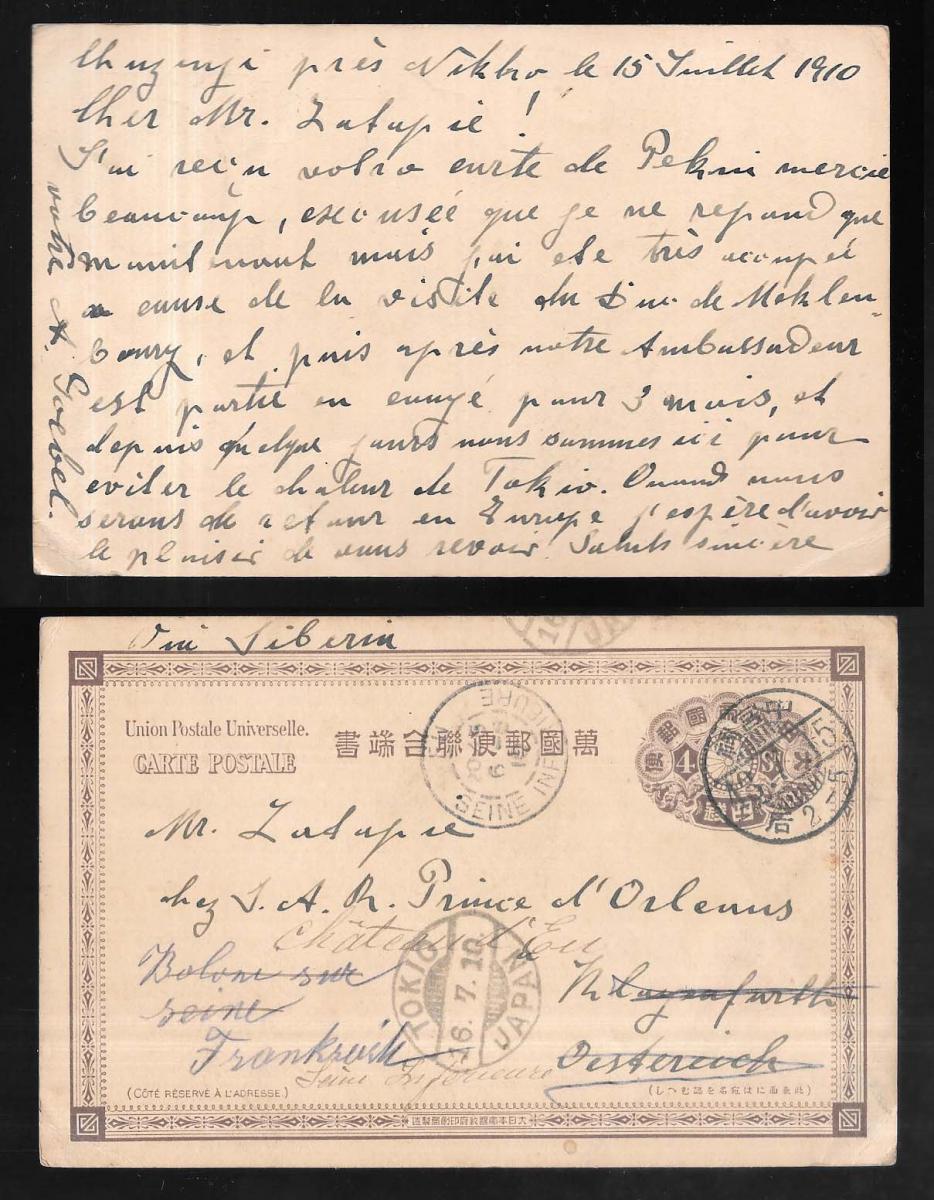 Chuzenji près Nikko le 15 Juillet 1910
Cher Mr. Latapie!
J'ai reçu votre carte de Pekin mercie
beaucoup, excusée que je ne repond que
maintenant mais j'ai ete très occupé
a cause de la visite du Duc de Meklen-
bourg, et puis après notre Ambassadeur
est partie en congé pour 3 mois, et
depuis quelque jours nous sommes ici pour
eviter le chaleur de Tokio. Quand nous
serons de retour en Europe j'espère d'avoir
le plaisir de vous revoir. Saluts sincère
votre A. Goebel.
Via Siberia
16 JA
Union Postale Universelle.
CARTE POSTALE
書端合聯便郵國萬
4
SEINE INFERIEURE
5
2
局
Mr. Latapie
chez S. A. R. Prince d'Orleans
Château d'Eu
Bolone sur
seine
Frankreich
Klagenfurth
Oestereich
Seine Inférieure
TOKIO
16.7.10.
JAPAN
(CÔTÉ RÉSERVÉ À L'ADRESSE.)
(しつむ認を名宛はに面表此)
造製局刷印府政國帝本日大